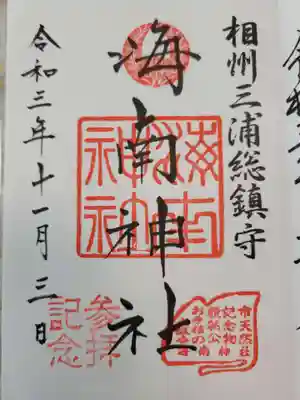 相州三浦総鎮守
海南神社
海南神社
令和三年十一月三日
参拝
記念
市天然
記念物神